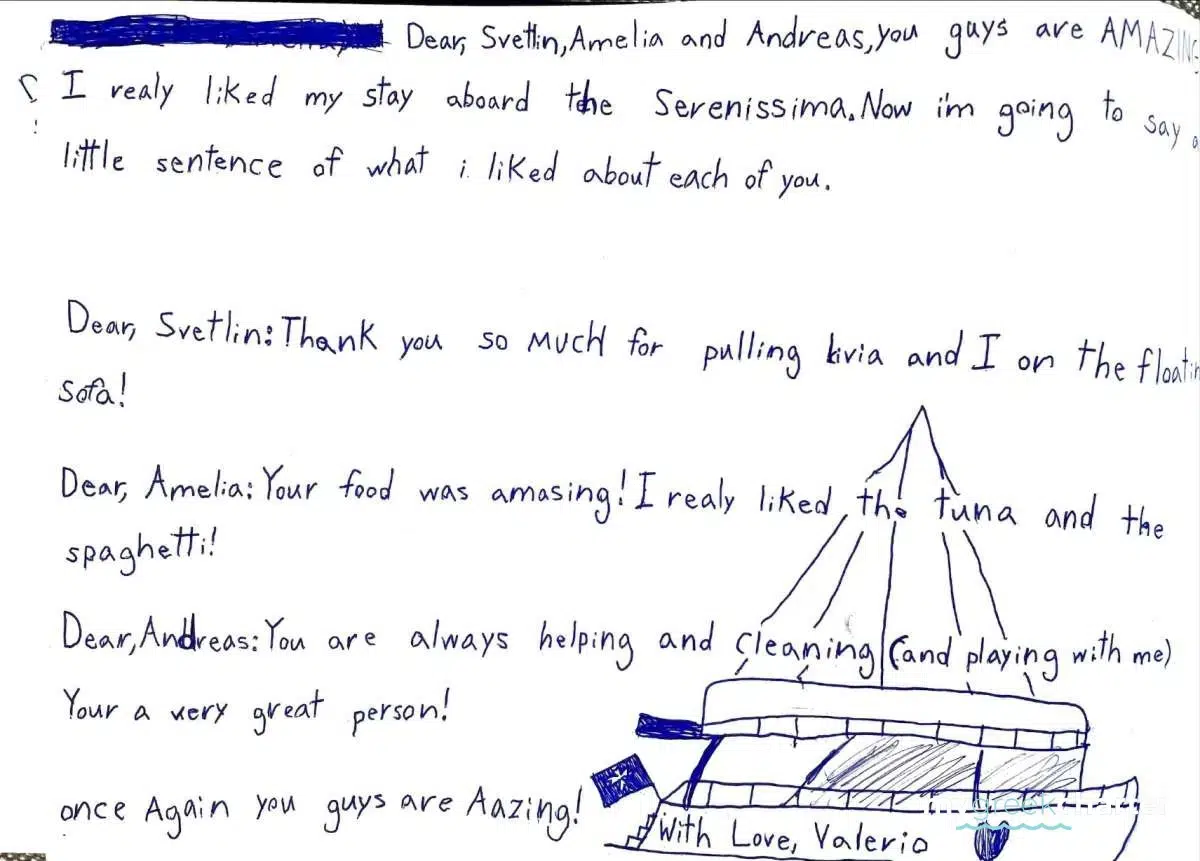 Dear, Svetlin, Amelia and Andreas, you guys are AMAZING
! I realy liked my stay aboard the Serenissima. Now i'm going to say a
little sentence of what i liked about each of you.
Dear, Svetlin: Thank you so MUCH for pulling livia and I on the floatin
sofa!
Dear, Amelia: Your food was amasing! I realy liked the tuna and the
spaghetti!
Dear, Andreas: You are always helping and cleaning (and playing with me)
Your a very great person!
once Again you guys are Aazing!
With Love, Valerio
greek